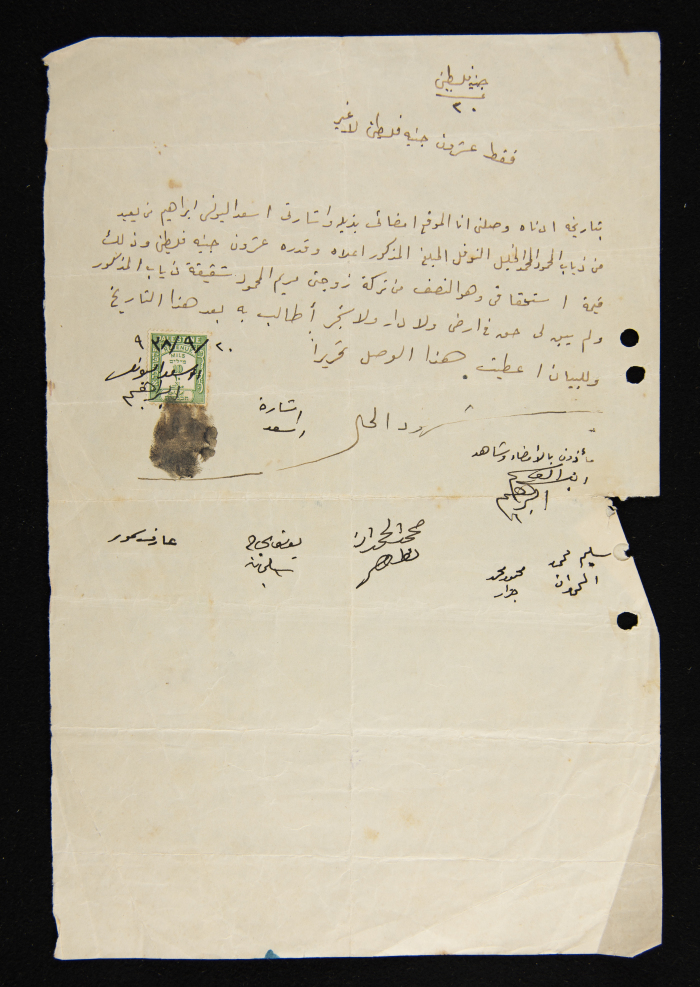 جنيه فلسطيني
٢٠
فقط عشرون جنيه فلسطيني لا غير
بتاريخه ادناه وصلني انا الموقع امضائي بذيله واشارتي اسعد اليونس ابراهيم من يعبد
من ذياب الحمود المحمد الخليل النوفل المبلغ المذكور اعلاه وقدره عشرون جنيه فلسطيني وذلك
قيمة استحقاقي وهو النصف من تركة زوجتي مريم المحمود شقيقة ذياب المذكور
ولم يبق لي حق في ارض ولا دار ولا شجر أطالب به بعد هذا التاريخ
وللبيان اعطيت هذا الوصل تحريراً
٢٠/٩/٩٣٨
REVENUE
MILS
اسعد اليونس
ابراهيم
اشارة
اسعد
شهود الحال
مأذون بالامضاء وشاهد
ابراهيم
سليم محمد
الحمدان
محمود محمد
جرار
يوسف
سليمان
عارف حمور